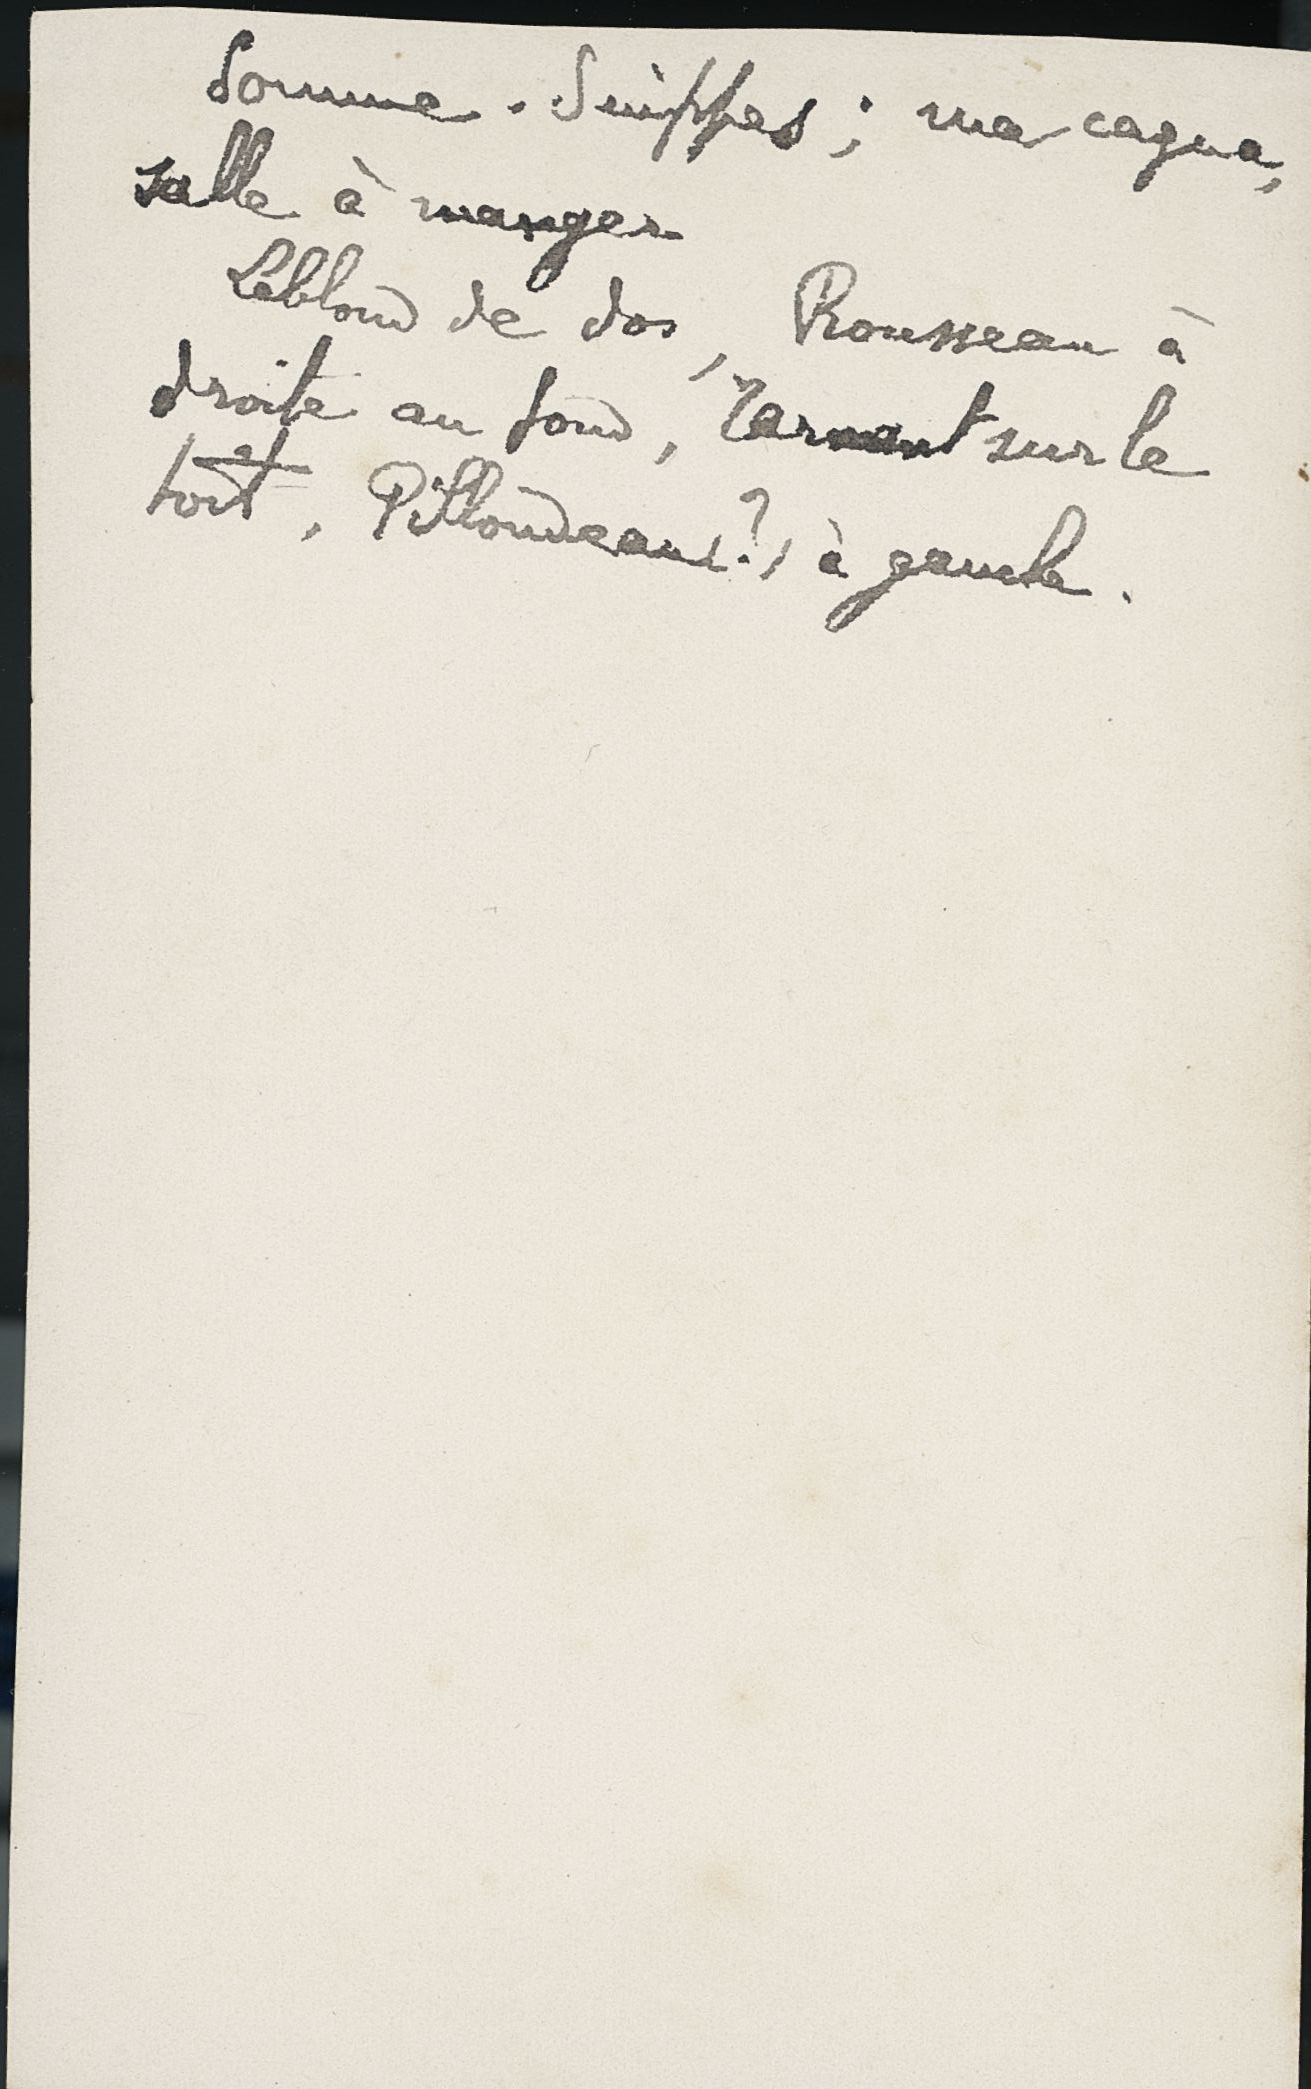 Somme-Suippes ; ma cagna,
salle à manger
Leblond de dos, Rousseau à
droite au fond, sur le
toit, Pillondeau(?) à gauche.